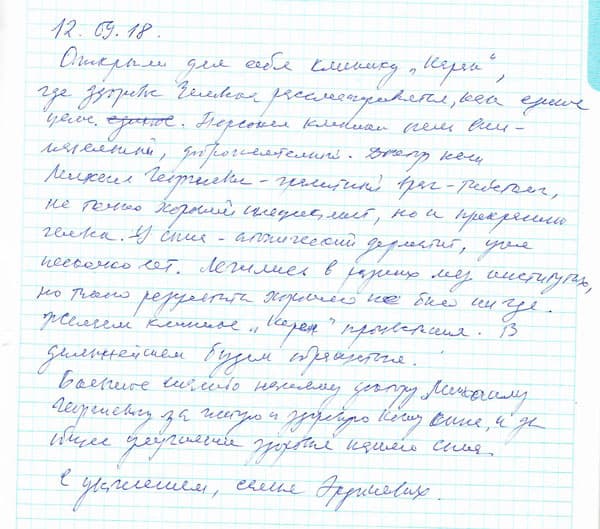 12.09.18.
Открыли для себя клинику „Керен“,
где здоровье человека рассматривается, как единое
целое. Персонал клиники очень вни-
мательный, доброжелательный. Доктор наш
Михаил Георгиевич - грамотный врач-
не только хороший специалист, но и прекрасный
человек. У сына - атопический дерматит, уже
несколько лет. Лечились в разных мед институтах,
но такого результата хорошего не было нигде.
Желаем клинике „Керен“ процветания. В
дальнейшем будем обращаться.
Большое спасибо нашему доктору Михаилу
Георгиевичу за и здоровую кожу сына, и за
общее улучшение здоровья нашего сына.
С уважением, семья